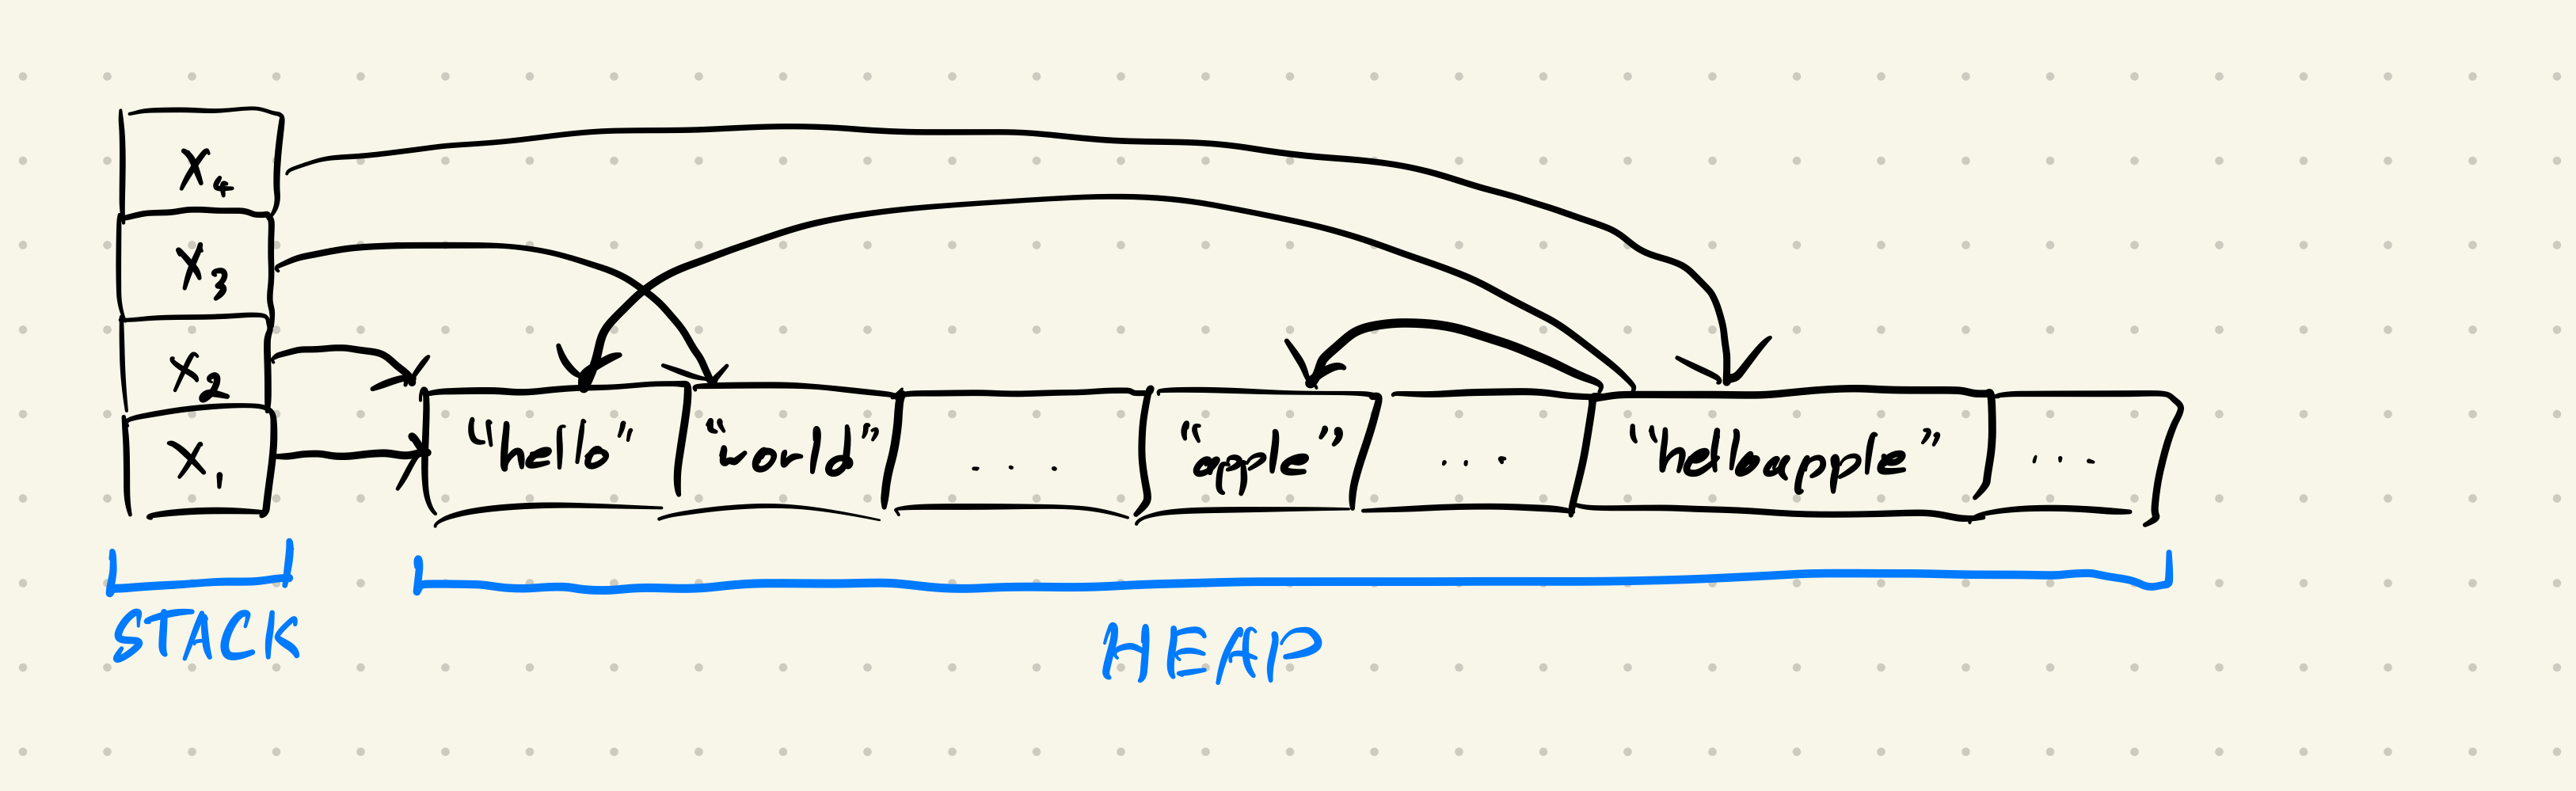 X₄
X₃
X₂
X₁
"hello" "world" ... "apple" ... "helloapple" ...
STACK
HEAP